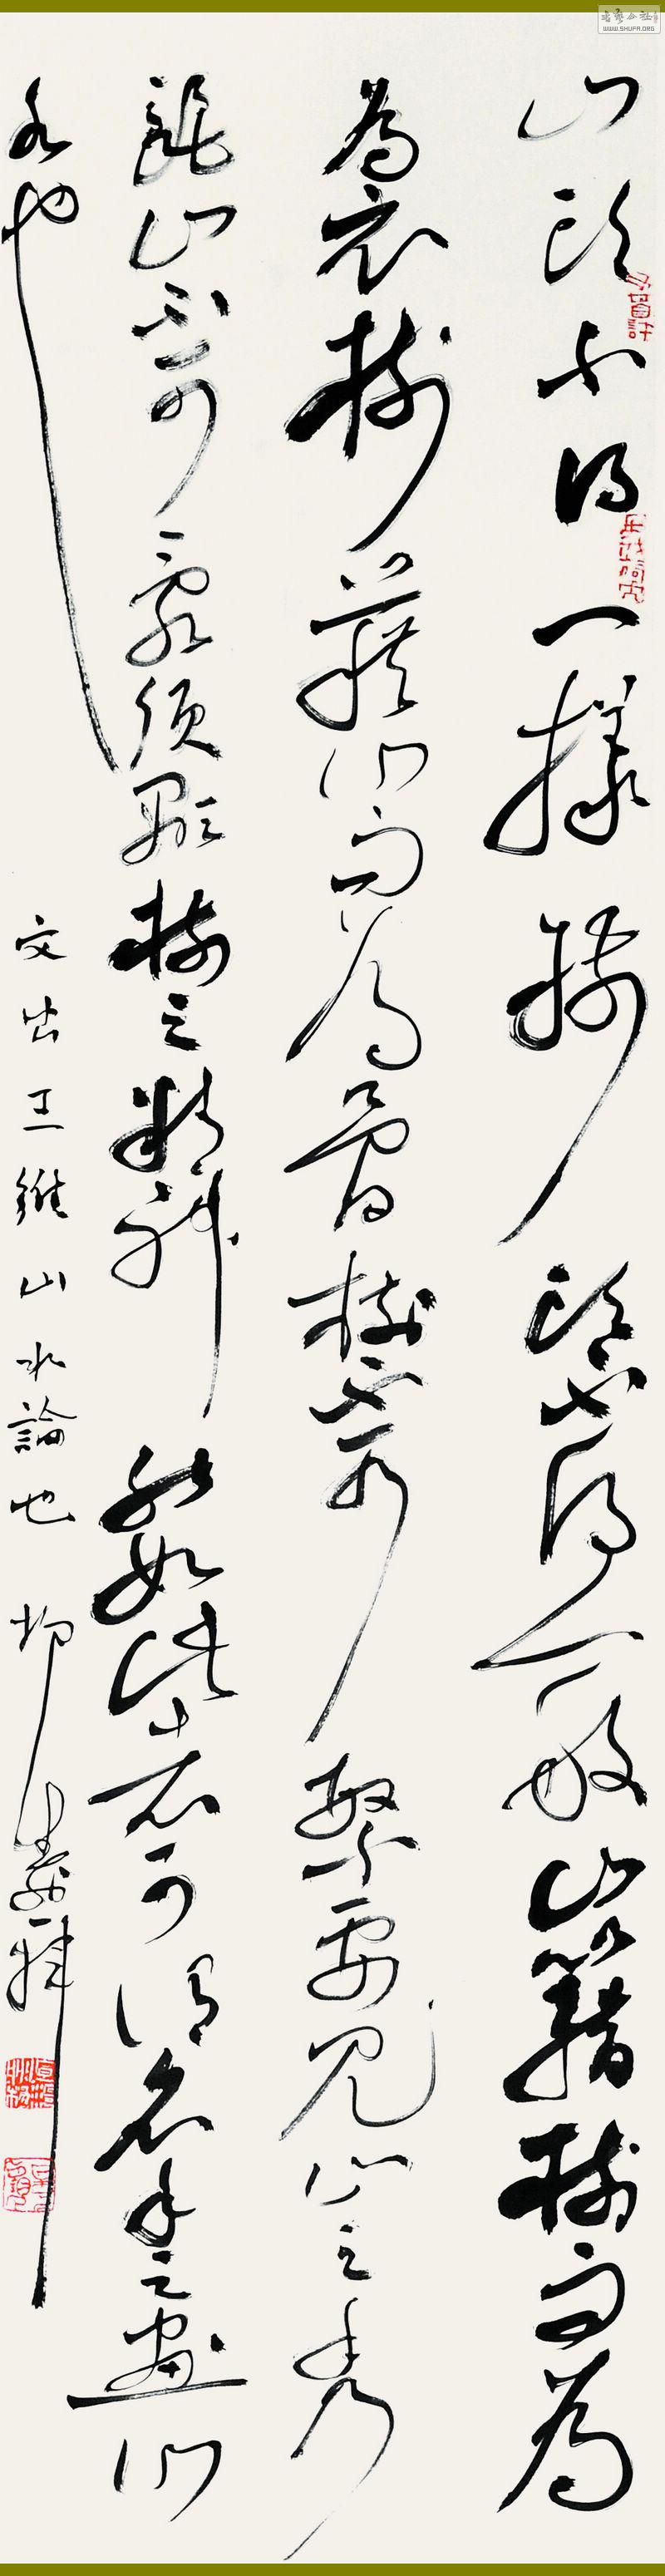 山頭不得一樣樹頭不得一般山藉樹而為
為衣樹藉山而為骨樹不可繁要見山之秀
麗山不可亂須顯樹之精神能如此者可謂名手之畫山
水也
文出王維山水論也
书艺公社
WWW.SHUFA.ORG